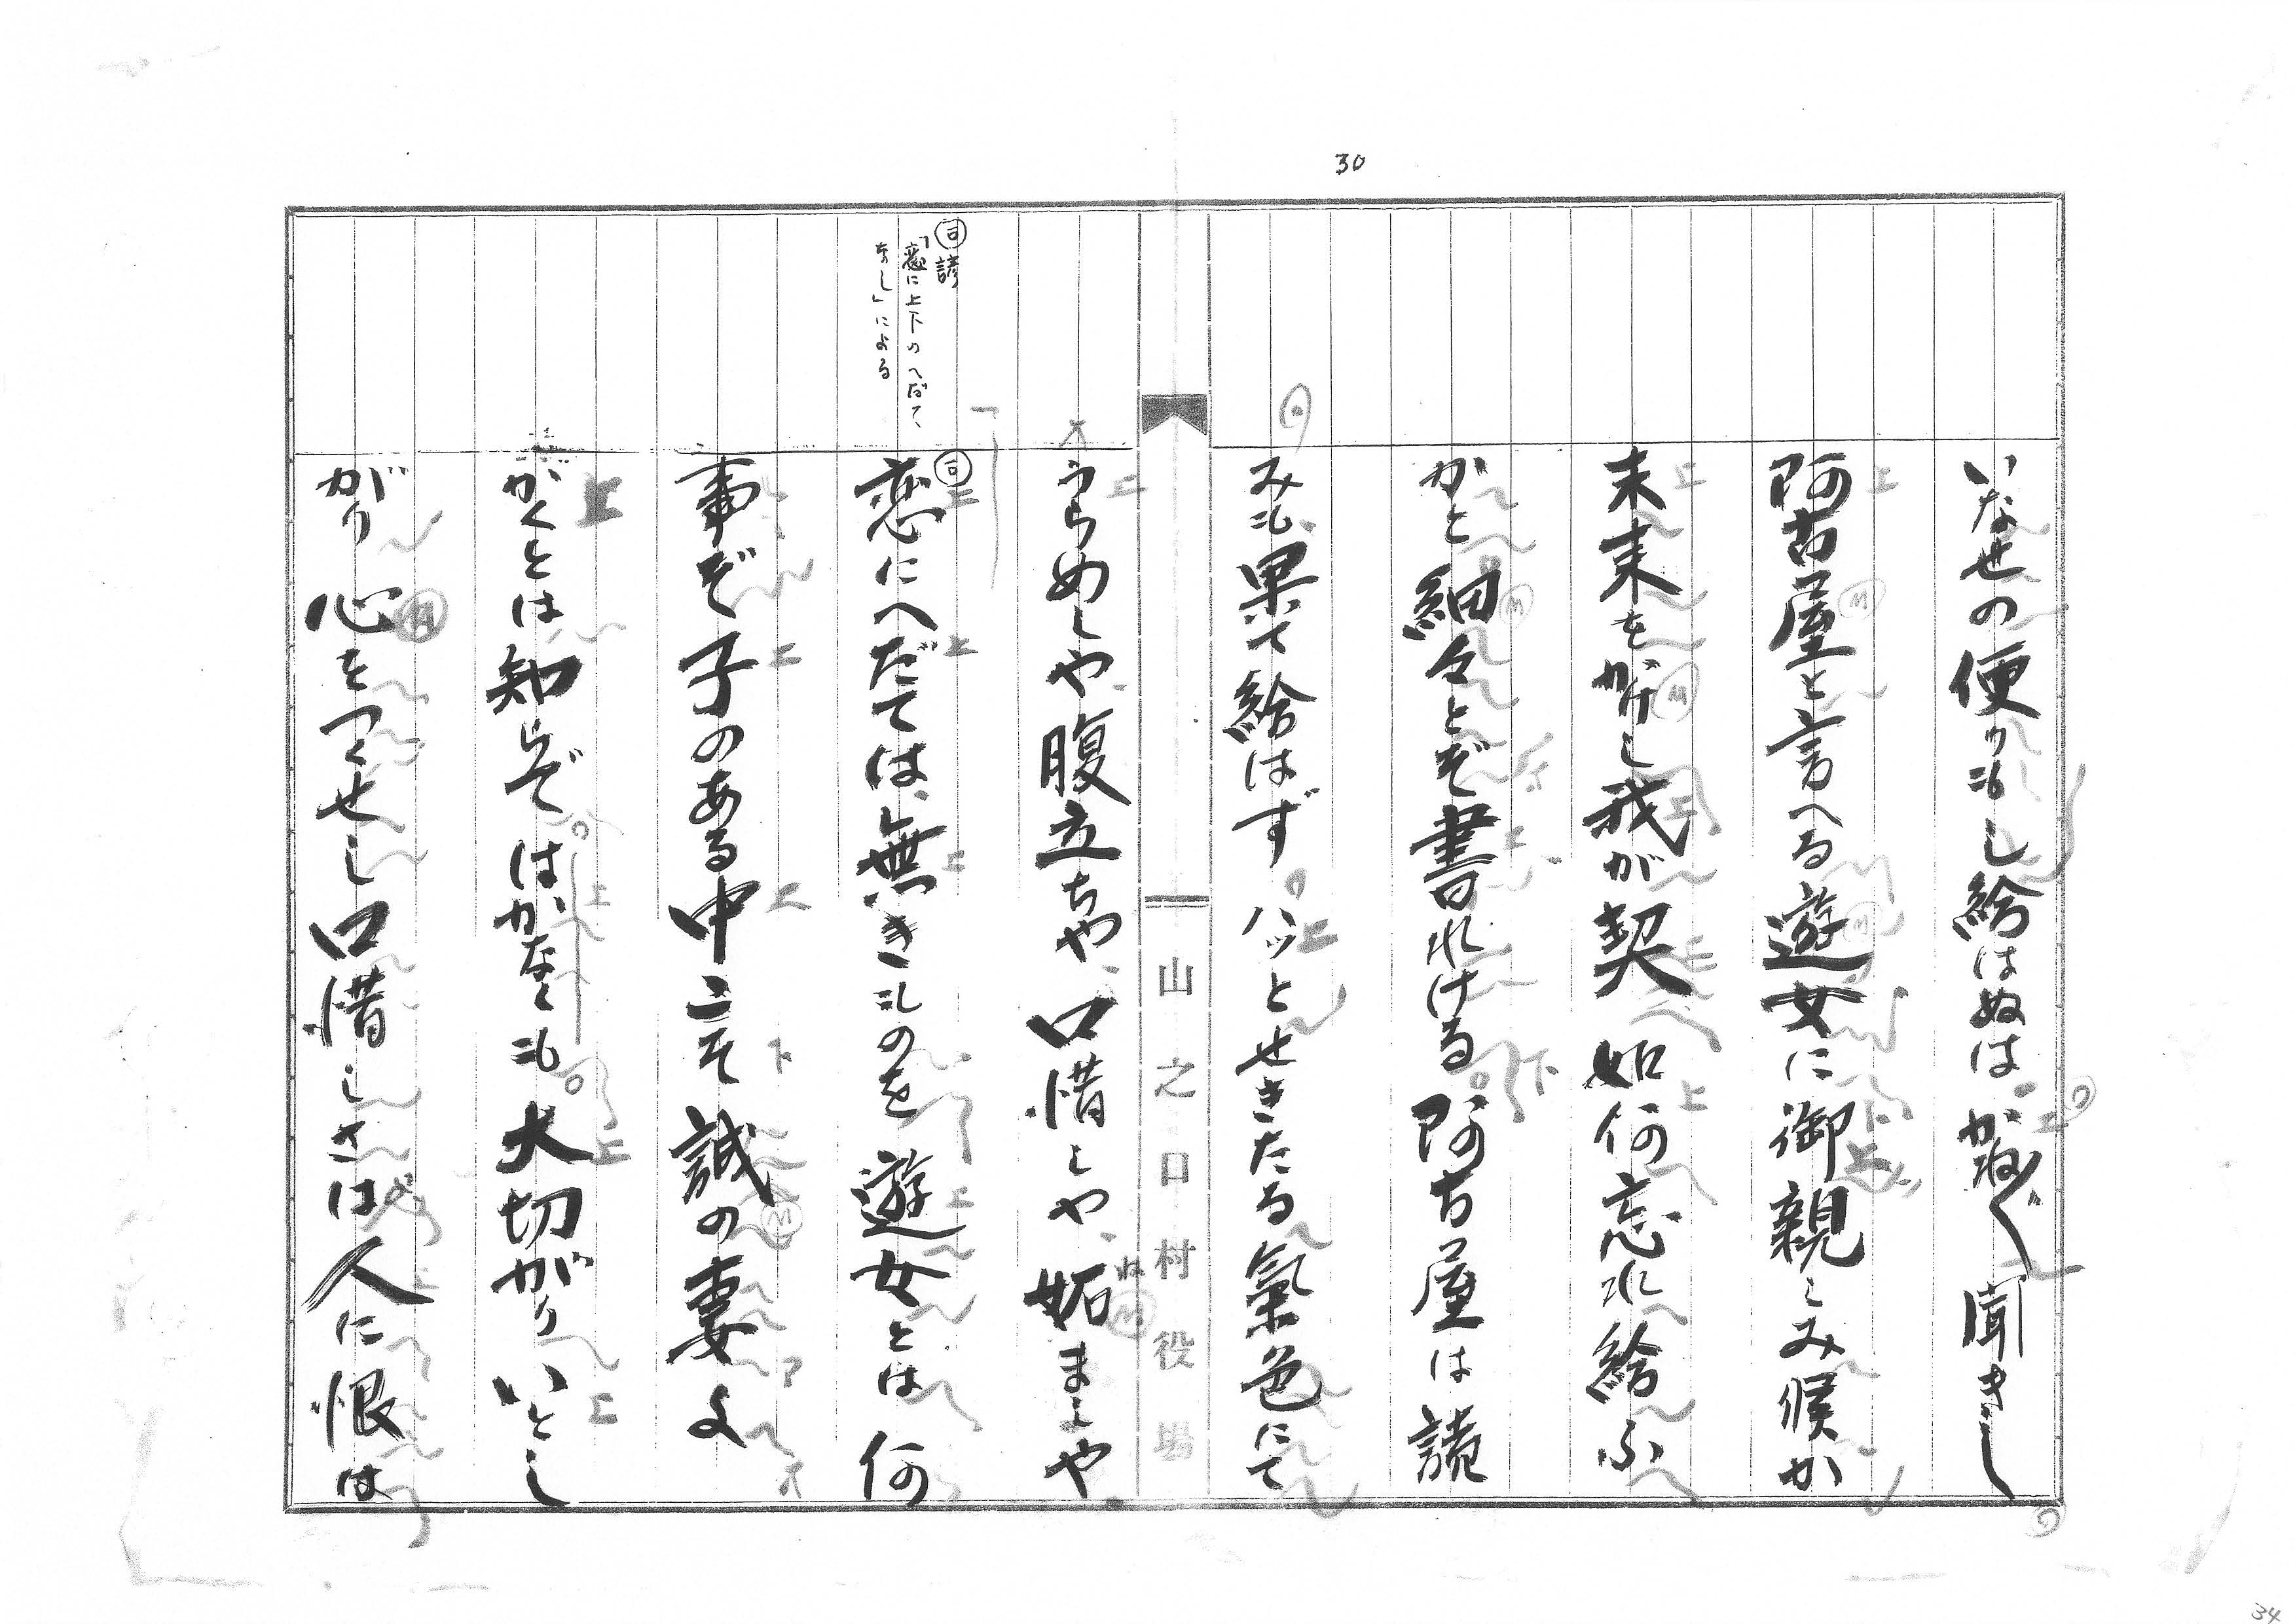 30
いなせの便りもし給はぬは。かね〴〵聞きし
阿古屋と言へる遊女に御親しみ候か
末末をかけし我が契 如何忘れ給ふ
かと細々とぞ書れける 阿古屋は読
みも果て給はず。ハッとせきたる氣色にて
うらめしや、腹立ちや、口惜しや、妬ましや、
ね
恋にへだては、無きものを 遊女とは何
事ぞ 子のある中こそ 誠の妻よ
かくとは知らで はかなくも 大切がり いとし
がり 心をつくせし 口惜しさは 人に恨は
諺
「恋に上下のへだて
なし」による
山之口村役場
34